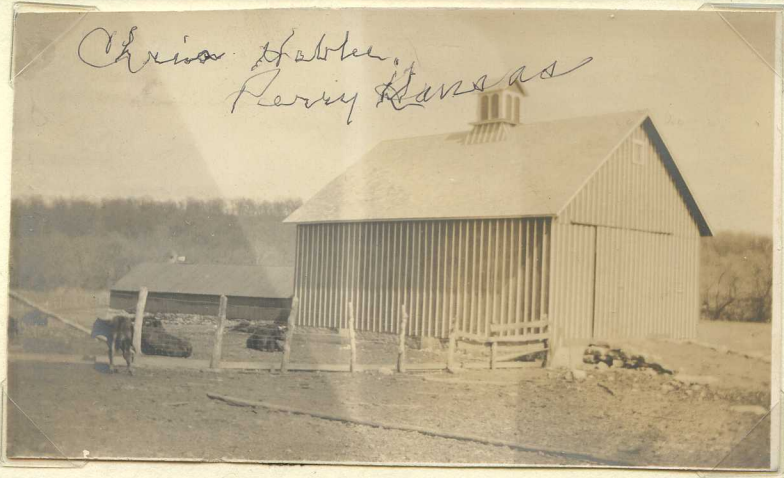 Chris Hable.
Perry Kansas